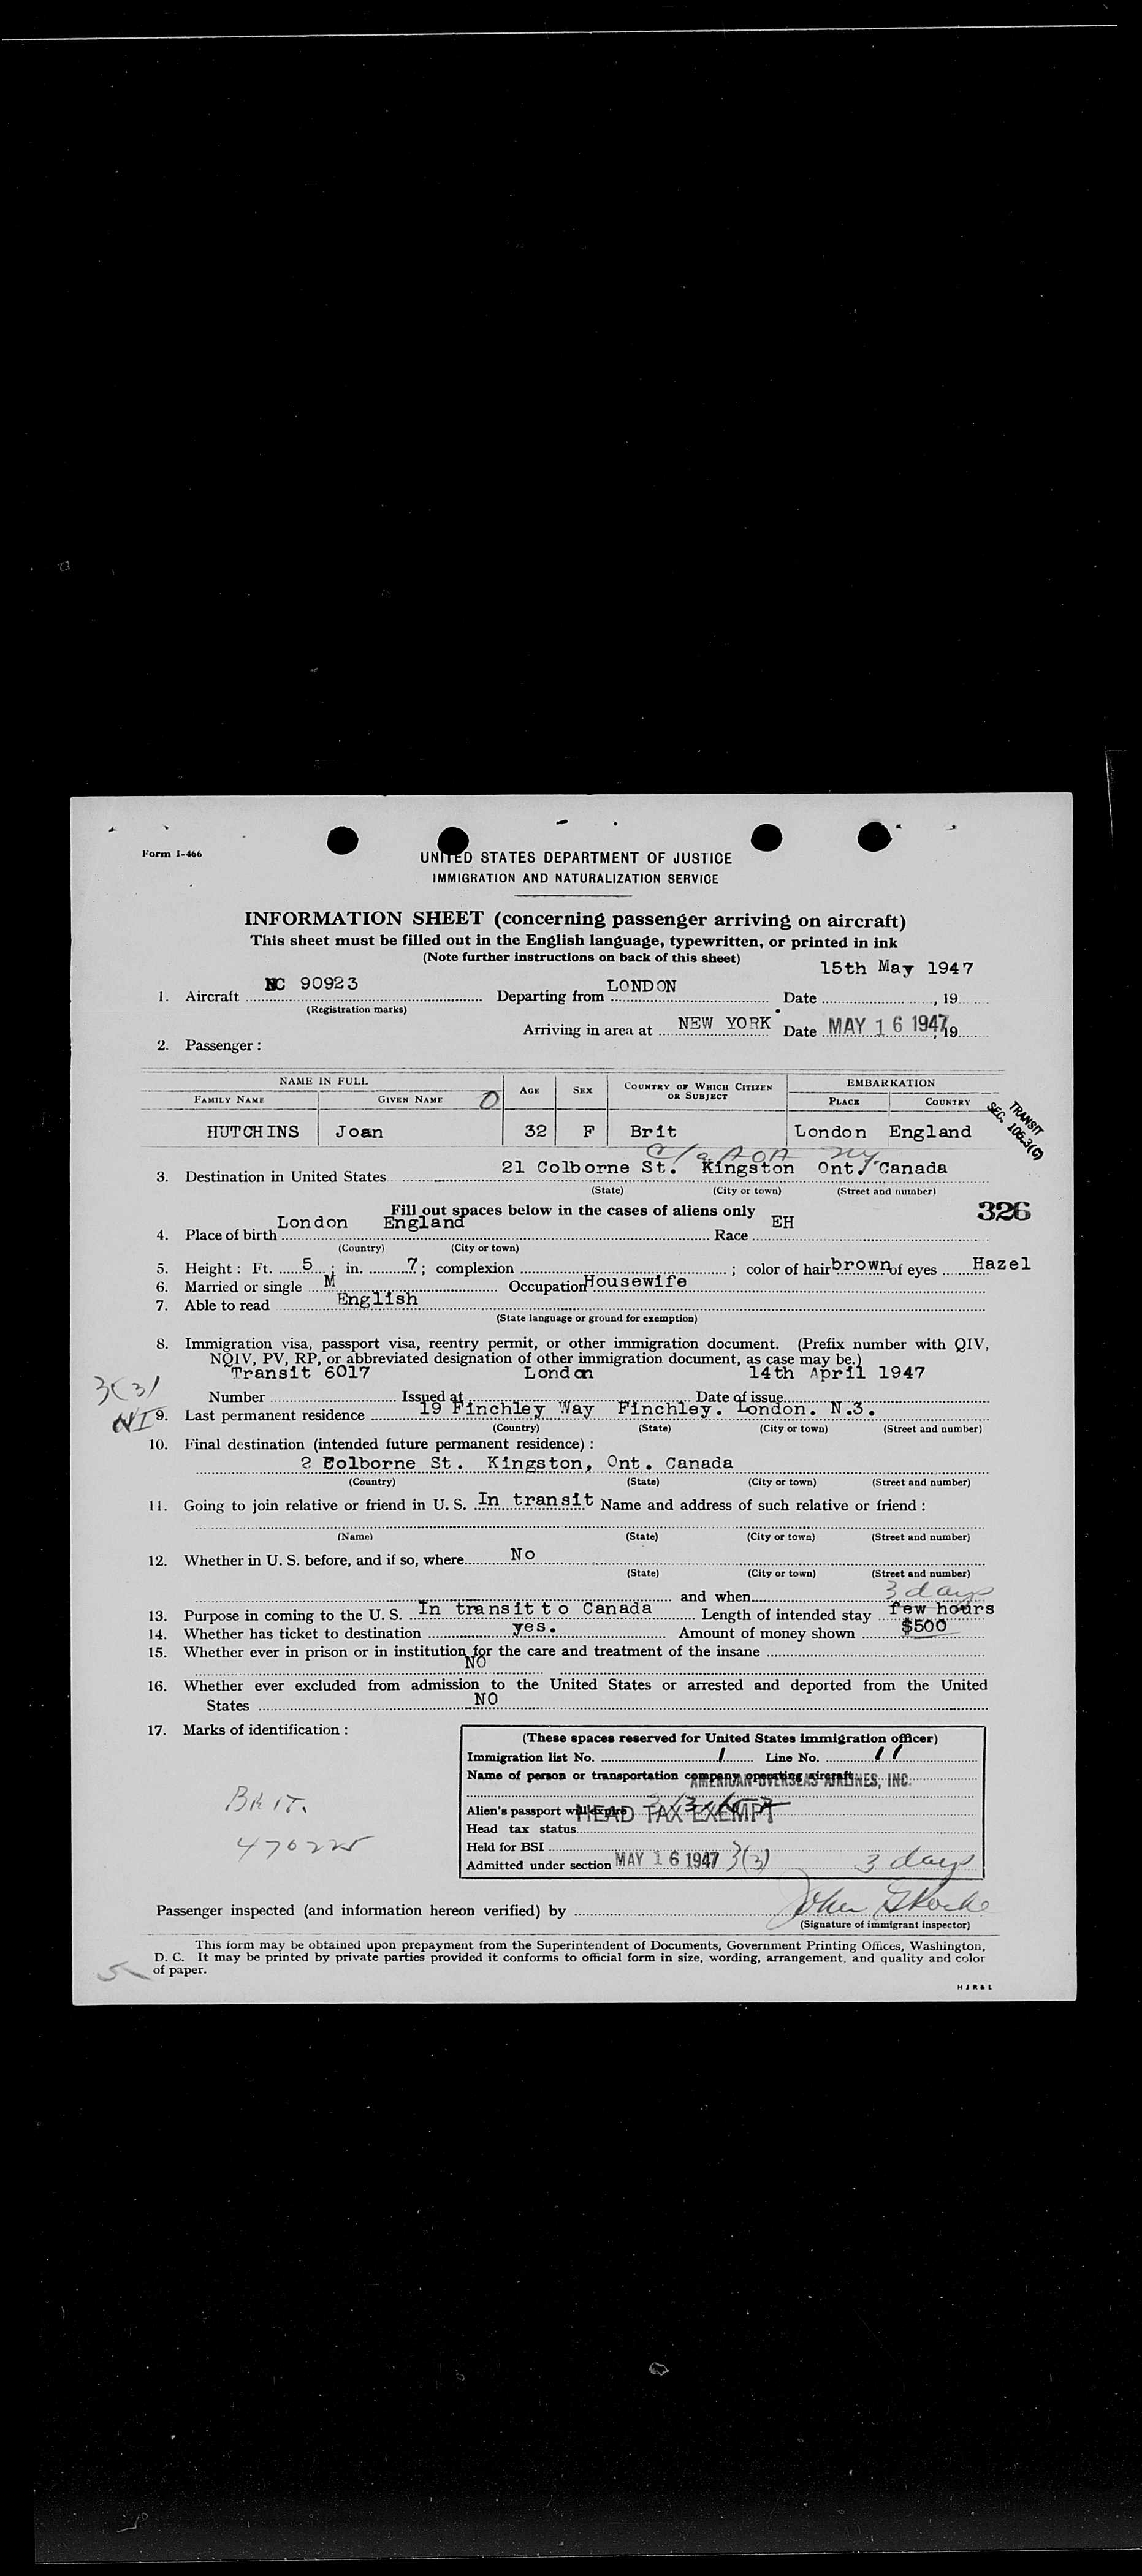 Form I-466
UNITED STATES DEPARTMENT OF JUSTICE
IMMIGRATION AND NATURALIZATION SERVICE
INFORMATION SHEET (concerning passenger arriving on aircraft)
This sheet must be filled out in the English language, typewritten, or printed in ink
(Note further instructions on back of this sheet)
15th May 1947
1. Aircraft NC 90923 Departing from LONDON Date , 19
(Registration marks)
Arriving in area at NEW YORK Date MAY 16 1947, 19
2. Passenger :
NAME IN FULL AGE SEX COUNTRY OF WHICH CITIZEN OR SUBJECT EMBARKATION
FAMILY NAME GIVEN NAME PLACE COUNTRY
TRANSIT
SEC. 106.3(C)
HUTCHINS Joan 32 F Brit London England
C/o AOA NY
3. Destination in United States 21 Colborne St. Kingston Ont. Canada
(State) (City or town) (Street and number)
Fill out spaces below in the cases of aliens only
326
4. Place of birth London England Race EH
(Country) (City or town)
5. Height : Ft. 5 ; in. 7 ; complexion ; color of hair brown of eyes Hazel
6. Married or single M Occupation Housewife
7. Able to read English
(State language or ground for exemption)
8. Immigration visa, passport visa, reentry permit, or other immigration document. (Prefix number with QIV,
NQIV, PV, RP, or abbreviated designation of other immigration document, as case may be.)
Transit 6017 London 14th April 1947
3(3)
Number Issued at Date of issue
NI
9. Last permanent residence 19 Finchley Way Finchley. London. N.3.
(Country) (State) (City or town) (Street and number)
10. Final destination (intended future permanent residence) :
2 Eolborne St. Kingston, Ont. Canada
(Country) (State) (City or town) (Street and number)
11. Going to join relative or friend in U. S. In transit Name and address of such relative or friend :
(Name) (State) (City or town) (Street and number)
12. Whether in U. S. before, and if so, where No
(State) (City or town) (Street and number)
and when 3 days
13. Purpose in coming to the U. S. In transit to Canada Length of intended stay few hours
14. Whether has ticket to destination yes. Amount of money shown $500
15. Whether ever in prison or in institution for the care and treatment of the insane
NO
16. Whether ever excluded from admission to the United States or arrested and deported from the United
States NO
17. Marks of identification :
(These spaces reserved for United States immigration officer)
Immigration list No. 1 Line No. 11
Name of person or transportation company operating aircraft AMERICAN OVERSEAS AIRLINES, INC.
Alien's passport will expire
HEAD TAX EXEMPT
Head tax status
Held for BSI
Admitted under section MAY 16 1947 3(3) 3 days
BRIT.
470225
Passenger inspected (and information hereon verified) by John
(Signature of immigrant inspector)
This form may be obtained upon prepayment from the Superintendent of Documents, Government Printing Offices, Washington,
D. C. It may be printed by private parties provided it conforms to official form in size, wording, arrangement, and quality and color
of paper.
5
H J R & L